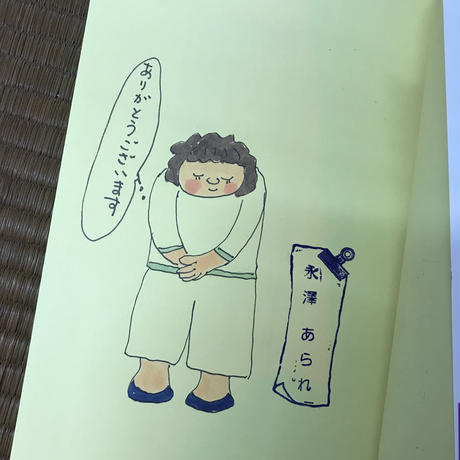 ありがとうございます
永澤 あられ